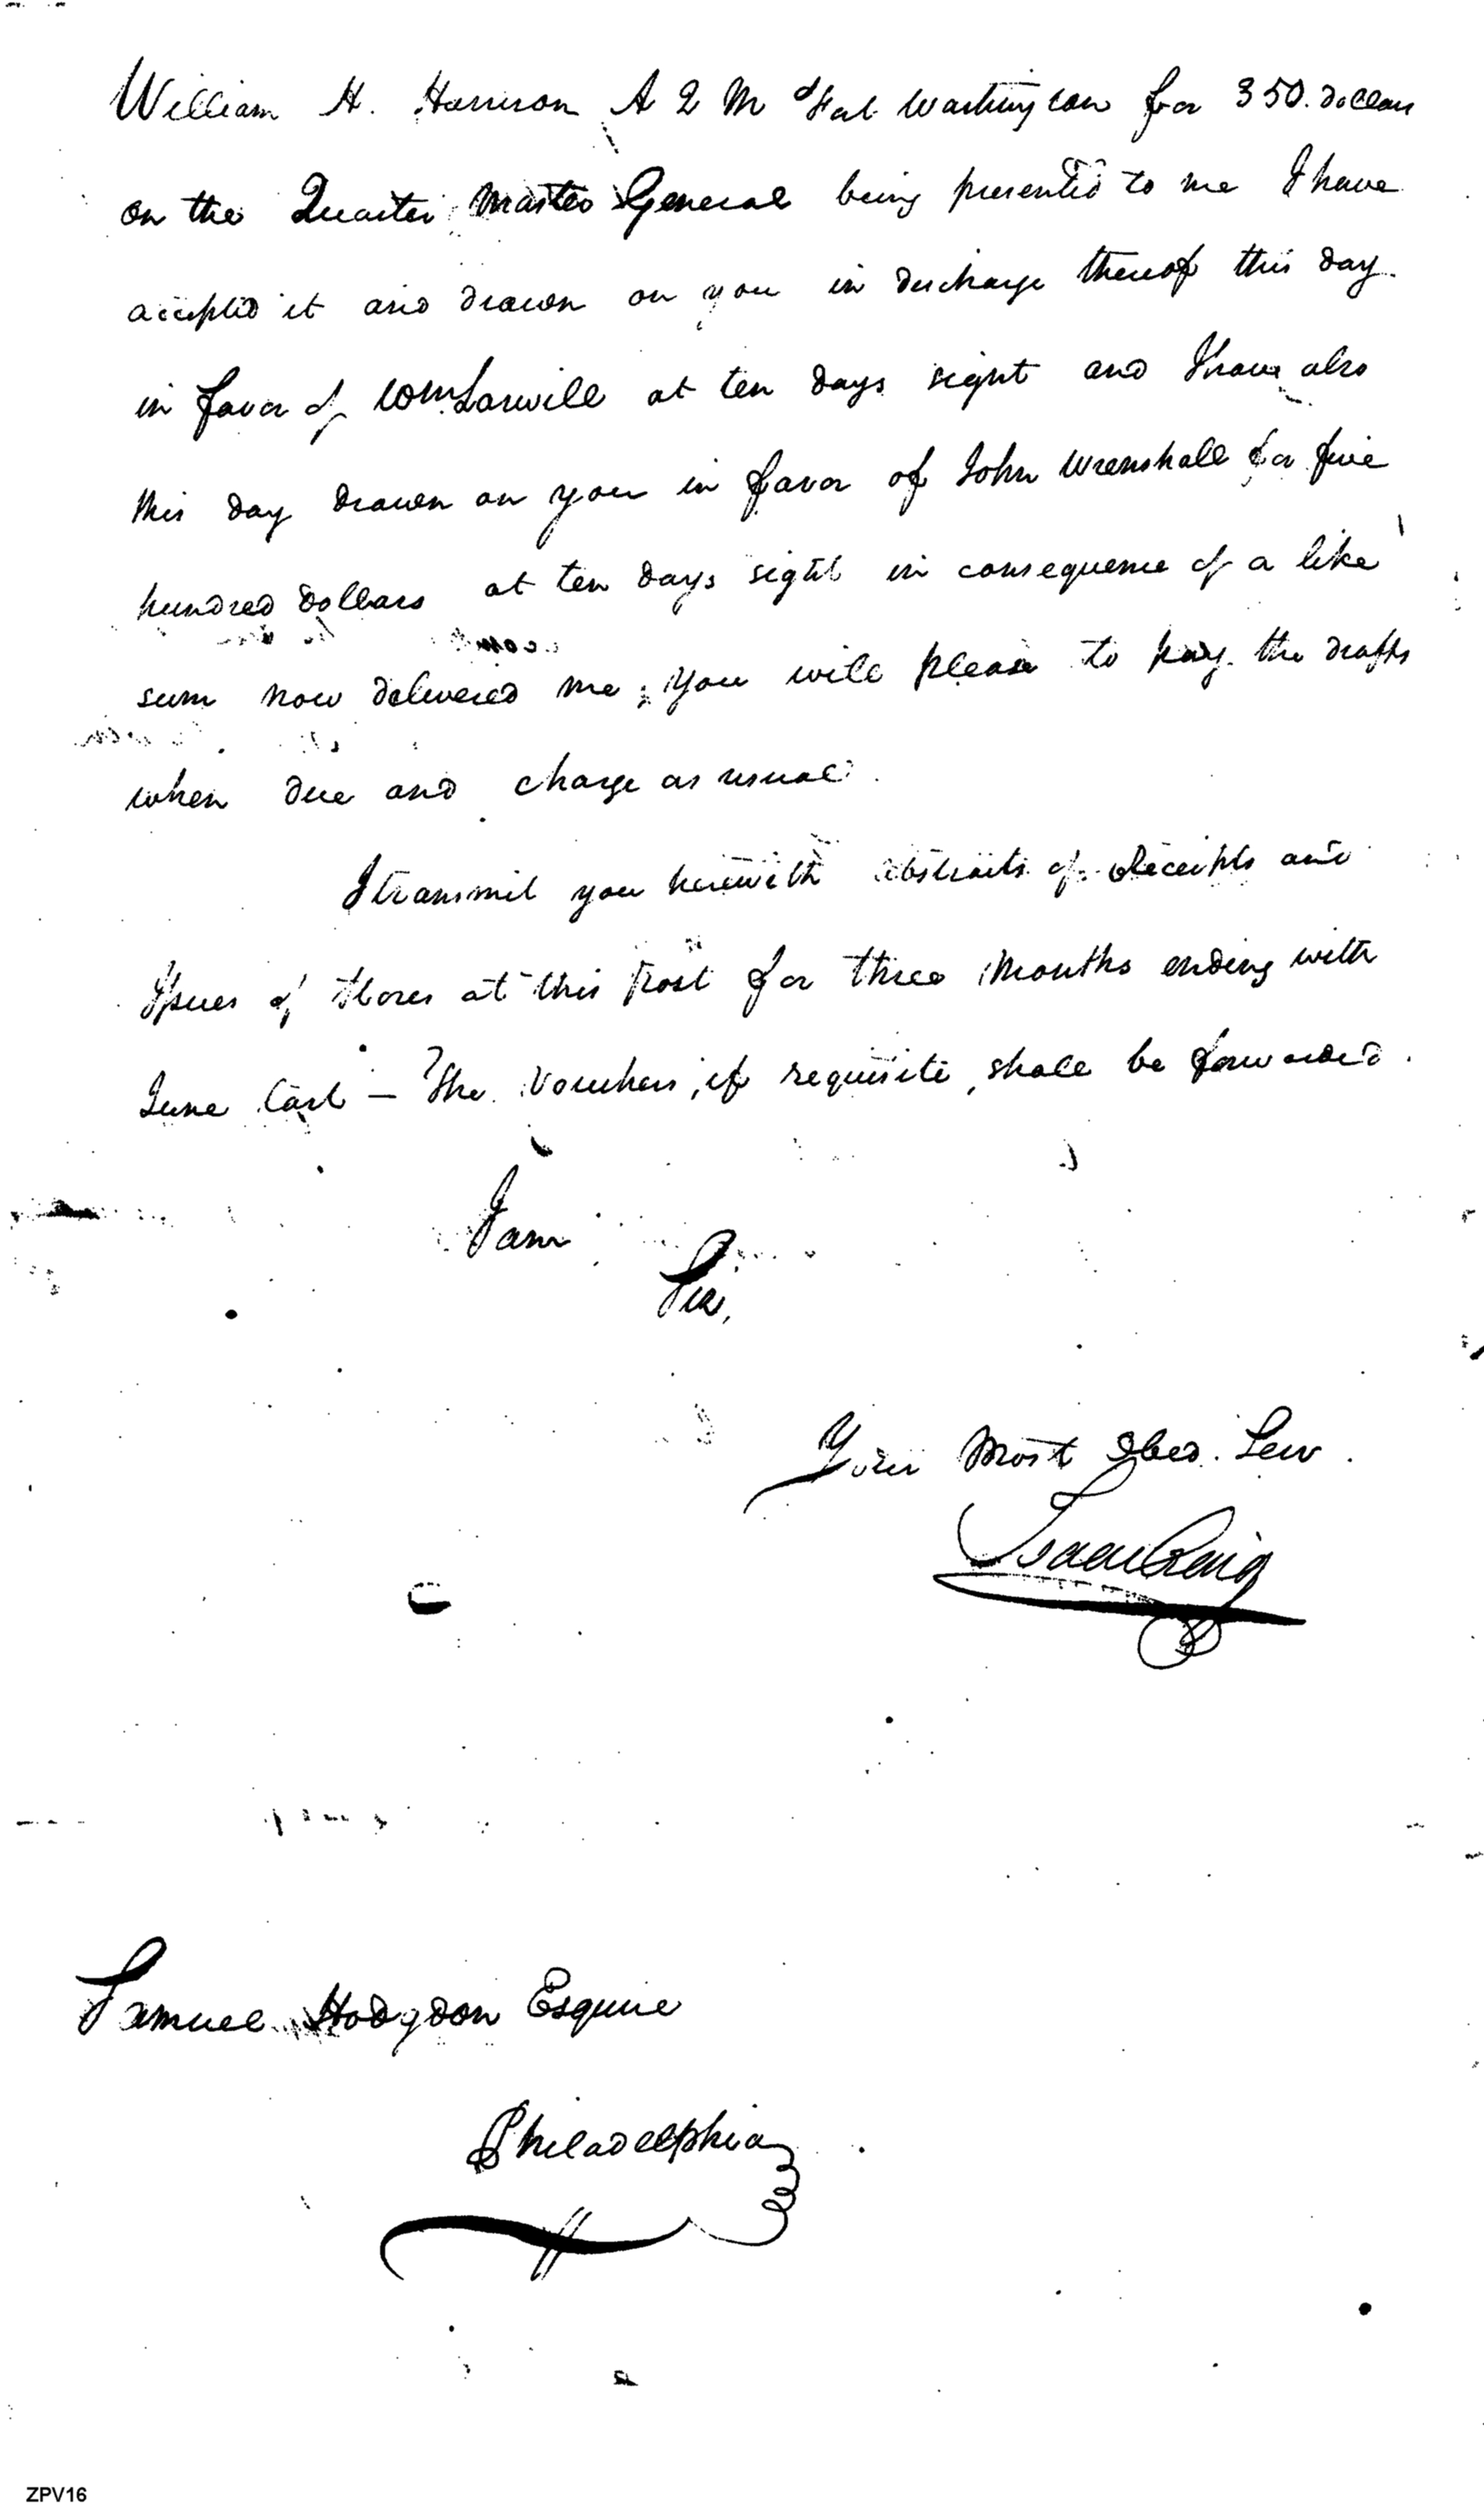 William H. Harrison A Q M Fort Washington for 350. dollars
on the Quarter Master General being presented to me I have
accepted it and drawn on you in discharge thereof this day
in favor of Wm Larwill at ten days sight and I have also
this day drawn on you in favor of John Wrenshall for five
hundred dollars at ten days sight in consequence of a like
sum now delivered me; you will please to pay the drafts
when due and charge as usual.
I transmit you herewith abstracts of Receipts and
Issues of Stores at this Post for three Months ending with
June last — The Vouchers, if requisite, shall be forwarded.
I am
Sir,
Your Most Obed. Serv.
Isaac Craig
Samuel Hodgdon Esquire
Philadelphia
ZPV16